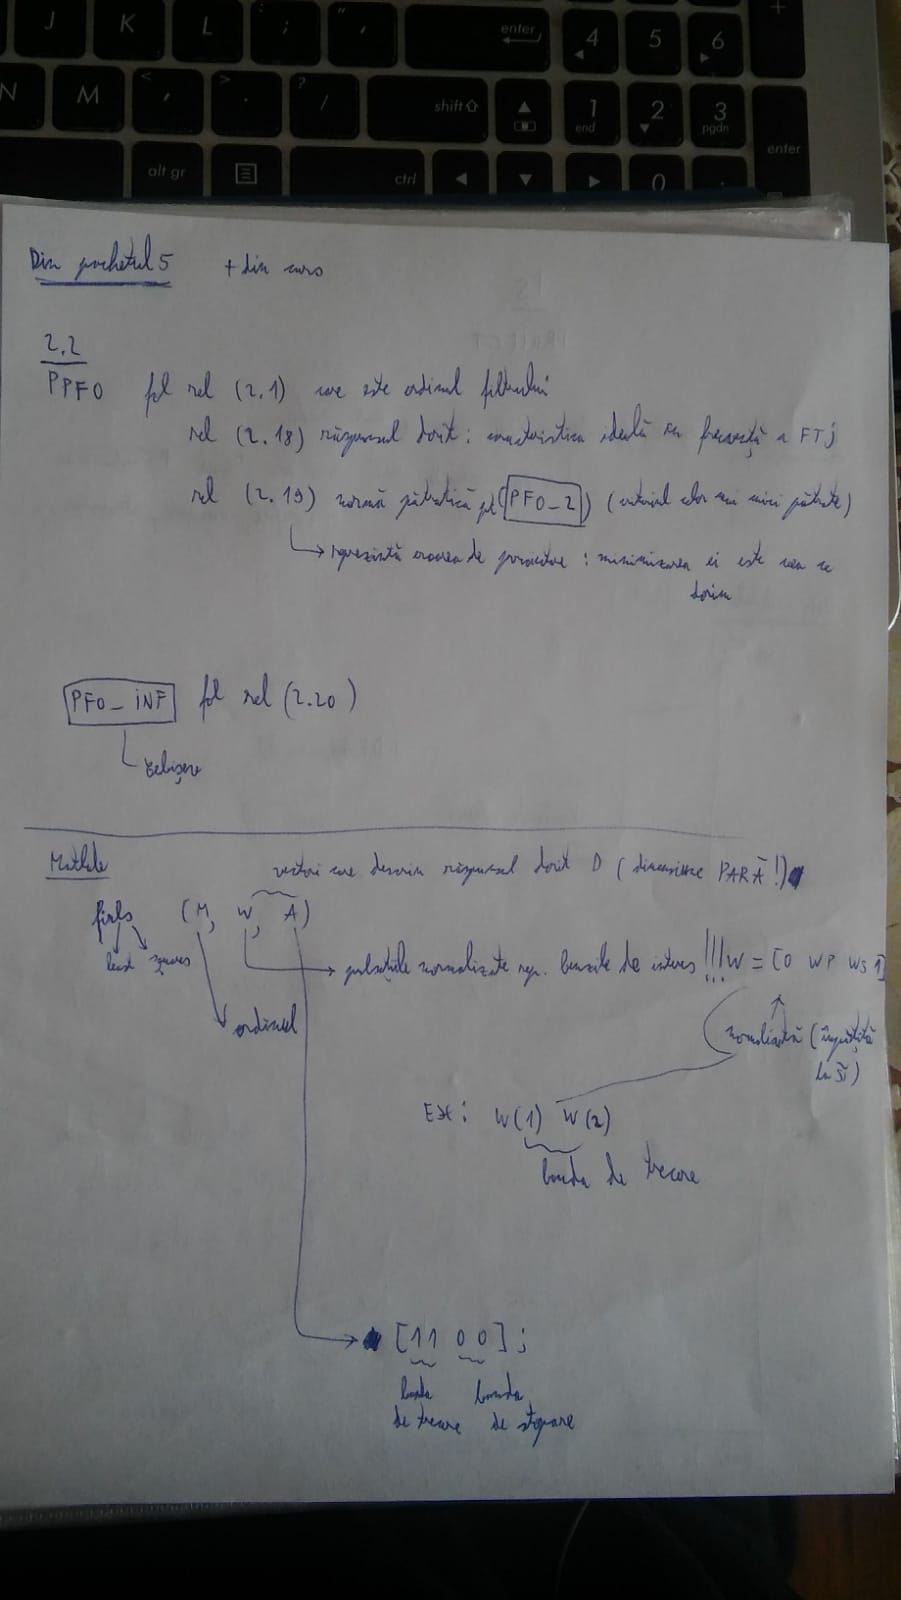 J K L : ; " ' enter 4 5 6
N M < , > . ? / shift 1 end 2 3 pgdn enter
alt gr ctrl 0 .
Din pachetul 5 + din curs
2.2
PPFO fol rel (2.1) care este ordinul filtrului
rel (2.18) răspunsul dorit : caracteristica ideală în frecvență a FTJ
rel (2.19) normă pătratică pt (PFO_2) (criteriul celor mai mici pătrate)
reprezintă eroarea de proiectare : minimizarea ei este ceea ce
dorim
PFO_INF fol rel (2.20)
Cebîșev
Matlab
vectori care descriu răspunsul dorit D (dimensiune PARĂ!)
firls (M, W, A)
least squares
pulsațiile normalizate rep. benzile de interes !!! W = [0 WP WS 1]
ordinul
normalizată (împărțită
la π)
Ex: W(1) W(2)
banda de trecere
[1 1 0 0] ;
banda banda
de trecere de stopare